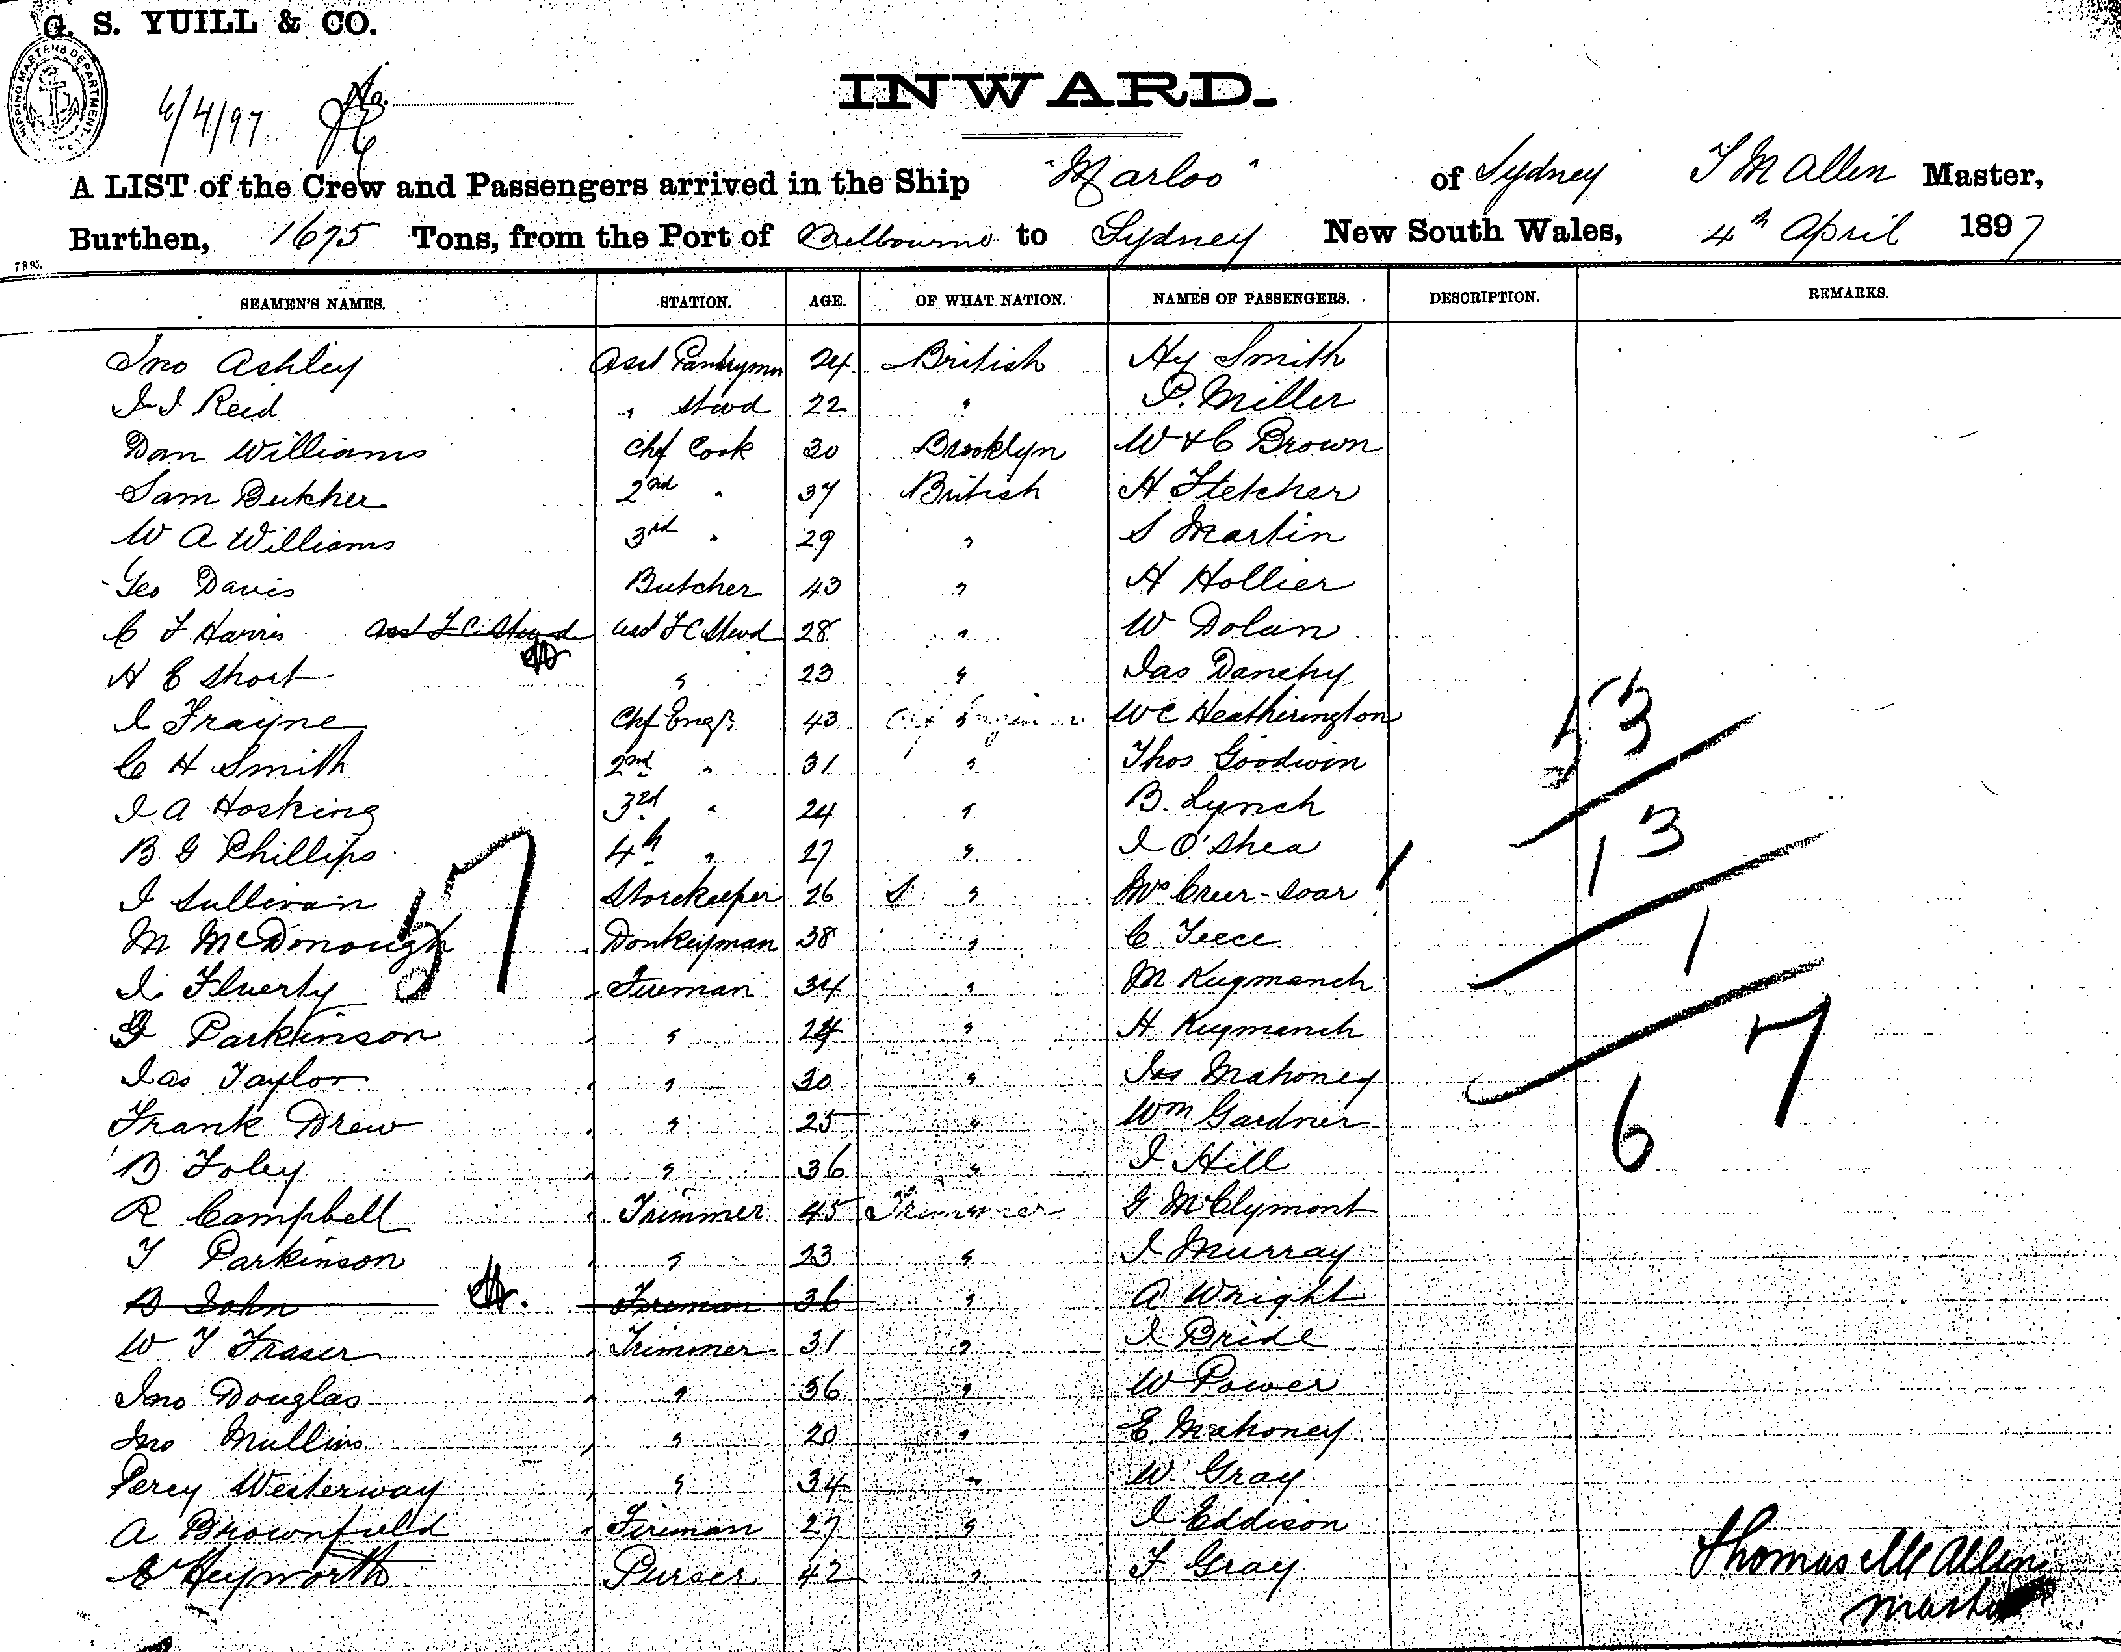 G. S. YUILL & CO.
SHIPPING MASTERS DEPARTMENT
6/4/97
INWARD.
A LIST of the Crew and Passengers arrived in the Ship "Marloo" of Sydney T M Allen Master,
Burthen, 1675 Tons, from the Port of Melbourne to Sydney New South Wales, 4th April 1897
SEAMEN'S NAMES. STATION. AGE. OF WHAT NATION. NAMES OF PASSENGERS. DESCRIPTION. REMARKS.
Jno Ashley Asst Pantryman 24 British Hy Smith
J J Reid " Stwd 22 " P. Miller
Dan Williams Chf Cook 30 Brooklyn W & C Brown
Sam Butcher 2nd " 37 British H Fletcher
W A Williams 3rd " 29 " S Martin
Geo Davis Butcher 43 " H Hollier
C F Harris Asst F C Stewd Asst F C Stewd 28 " W Dolan
H E Short " 23 " Jas Danehy
J Frayne Chf Engr 43 " W C Heatherington
C H Smith 2nd " 31 " Thos Goodwin
J A Hosking 3rd " 24 " B. Lynch
B G Phillips 4th " 27 " J O'Shea
J Sullivan Storekeeper 26 S " Mrs Creer-Soar
M McDonough Donkeyman 38 " C Teece
J. Fluerty Fireman 34 " M Kugmanch
G Parkinson " 24 " H Kugmanch
Jas Taylor " 30 " Jas Mahoney
Frank Drew " 25 " Wm Gardner
B Foley " 36 " J Hill
R Campbell Trimmer 45 Trimmer G McClymont
T Parkinson " 23 " J Murray
B John Fireman 36 " A Wright
W T Fraser Trimmer 31 " J Bride
Jno Douglas " 36 " W Power
Jno Mullins " 20 " E Mahoney
Percy Westerway " 34 " W Gray
A Brownfield Fireman 27 " J Eddison
E Heyworth Purser 42 " F Gray
57
53
13
1
67
Thomas M Allen
Master